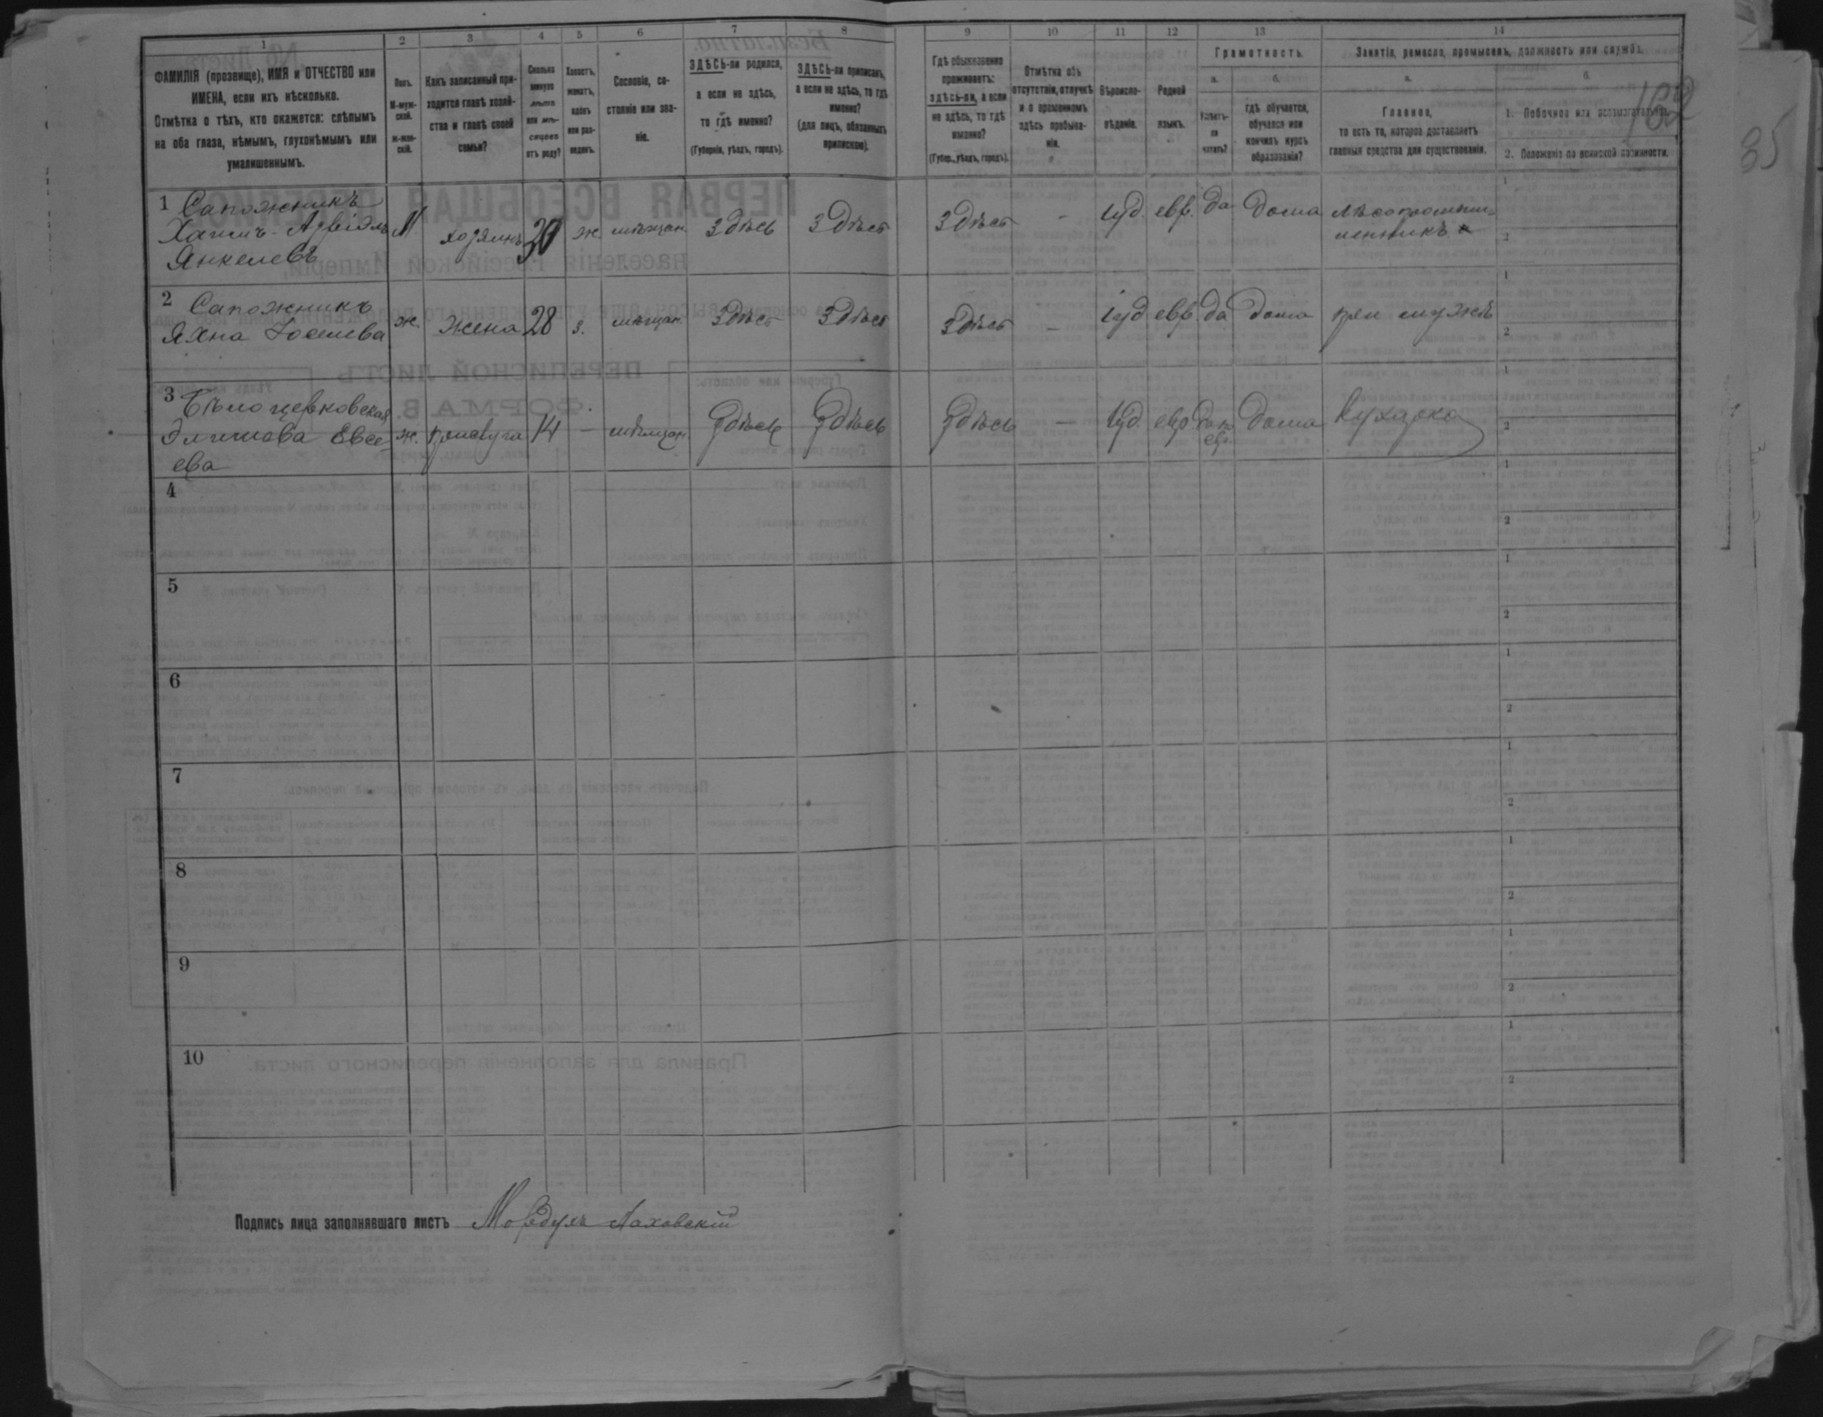 1 2 3 4 5 6 7 8 9 10 11 12 13 14
ФАМИЛІЯ (прозвище), ИМЯ и ОТЧЕСТВО или
ИМЕНА, если ихъ нѣсколько.
Отмѣтка о тѣхъ, кто окажется: слѣпымъ
на оба глаза, нѣмымъ, глухонѣмымъ или
умалишеннымъ.
Полъ.
М-муж-
ской.
ж-жен-
скій.
Какъ записанный при-
ходится главѣ хозяй-
ства и главѣ своей
семьи?
Сколько
минуло
лѣтъ
или мѣ-
сяцевъ
отъ роду?
Холостъ,
женатъ,
вдовъ
или раз-
веденъ.
Сословіе, со-
стояніе или зва-
ніе.
ЗДѢСЬ-ли родился,
а если не здѣсь,
то гдѣ именно?
(Губернія, уѣздъ, городъ).
ЗДѢСЬ-ли приписанъ,
а если не здѣсь, то гдѣ
именно?
(для лицъ, обязанныхъ
припискою).
Гдѣ обыкновенно
проживаетъ:
здѣсь-ли, а если
не здѣсь, то гдѣ
именно?
(Губер., уѣздъ, городъ).
Отмѣтка объ
отсутствіи, отлучкѣ
и о временномъ
здѣсь пребыва-
ніи.
Вѣроиспо-
вѣданіе.
Родной
языкъ.
Грамотность.
а.
Умѣетъ-
ли
читать?
б.
Гдѣ обучается,
обучался или
кончилъ курсъ
образованія?
Занятіе, ремесло, промыселъ, должность или служба.
а.
Главное,
то есть то, которое доставляетъ
главныя средства для существованія.
б.
1. Побочное или вспомогательное.
2. Положеніе по воинской повинности.
35
1 Сапожникъ
Хаимъ-Азріэль М хозяинъ 30 ж мѣщан. здѣсь здѣсь здѣсь - іуд. евр. да дома лѣсопромыш-
Янкелевъ ленникъ
2 Сапожникъ
Яхна Іосиева ж. жена 28 з. мѣщан. здѣсь здѣсь здѣсь - іуд евр да дома при мужѣ
3 Бѣлоцерковская
Евсе ж. прислуга 14 - мѣщан. здѣсь здѣсь здѣсь - іуд. евр да по дома Кухарка
ева евр.
4
5
6
7
8
9
10
Подпись лица заполнявшаго листъ Мордухъ Лаховскій